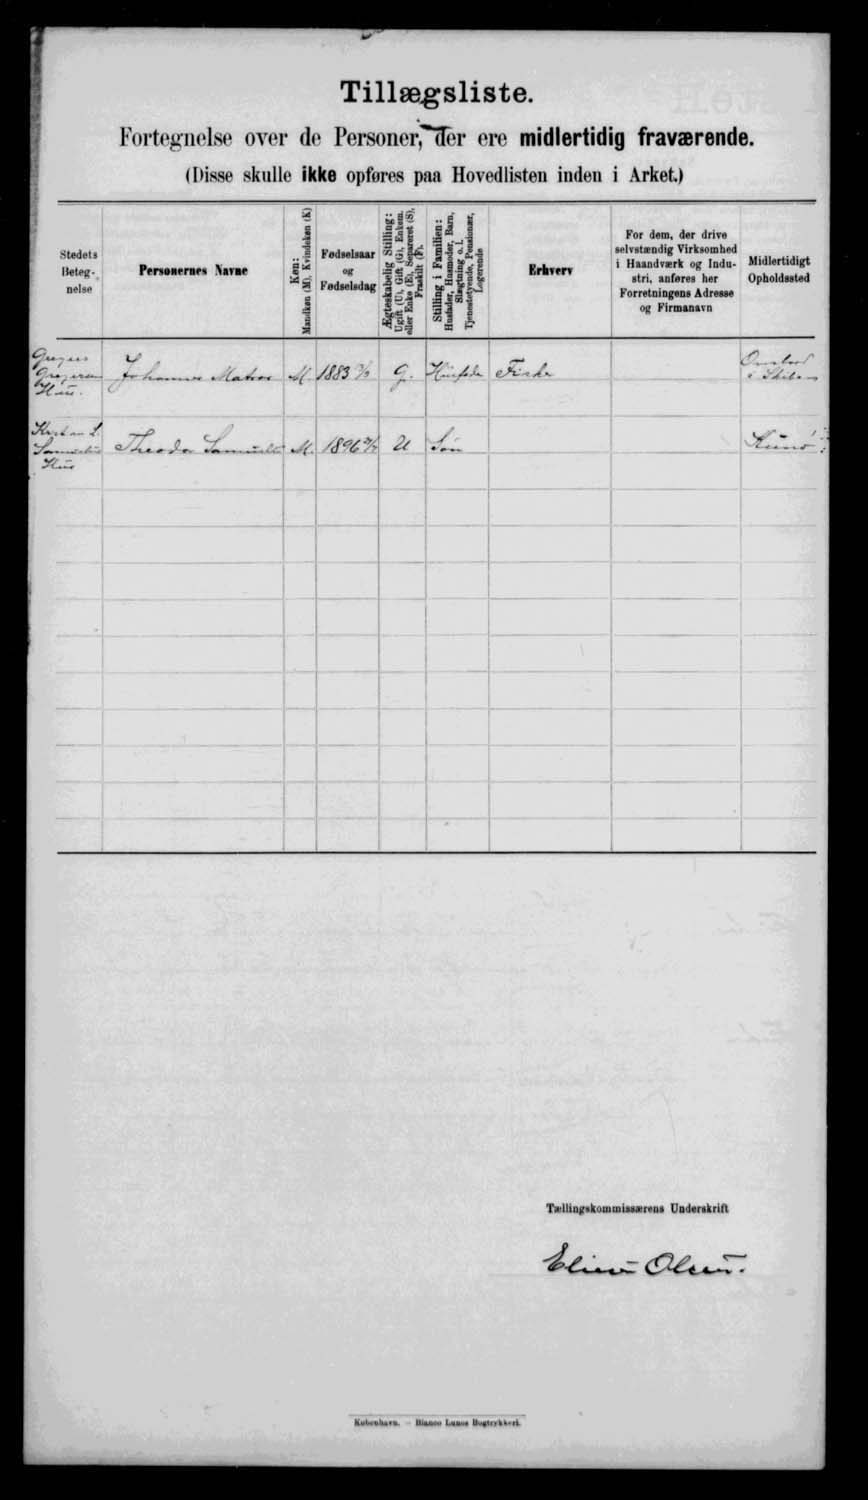 Tillægsliste.
Fortegnelse over de Personer, der ere midlertidig fraværende.
(Disse skulle ikke opføres paa Hovedlisten inden i Arket.)
Stedets
Beteg-
nelse
Personernes Navne
Køn:
Mandkøn (M), Kvindekøn (K)
Fødselsaar
og
Fødselsdag
Ægteskabelig Stilling:
Ugift (U), Gift (G), Enkem.
eller Enke (E), Separeret (S),
Fraskilt (F).
Stilling i Familien:
Husfader, Husmoder, Barn,
Slægtning o. l.
Tjenestetyende, Pensionær,
Logerende
Erhverv
For dem, der drive
selvstændig Virksomhed
i Haandværk og Indu-
stri, anføres her
Forretningens Adresse
og Firmanavn
Midlertidigt
Opholdssted
Hus.
Johannes Matras M. 1883 G. Husfader Fisker
Hus
Theodor Samuelsen M. 1896 U Søn Kunø
Tællingskommissærens Underskrift
Olsen.
København. — Bianco Lunos Bogtrykkeri.